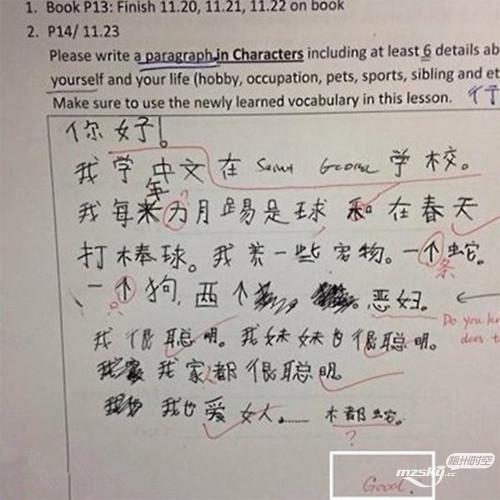 1. Book P13: Finish 11.20, 11.21, 11.22 on book
2. P14/ 11.23
Please write a paragraph in Characters including at least 6 details ab
yourself and your life (hobby, occupation, pets, sports, sibling and et
Make sure to use the newly learned vocabulary in this lesson.
你好!
我学中文在 Saint George 学校。
我每年 为月踢是球 和在春天
打棒球。我养一些宠物。一个蛇。
条
一个狗,西个 恶妇。
Do you
does t
我很聪明。我妹妹也很聪明。
我家都很聪明。
我也爱女人…… 木都蛇。
?
Good.
mzsky.cc
梅州时空